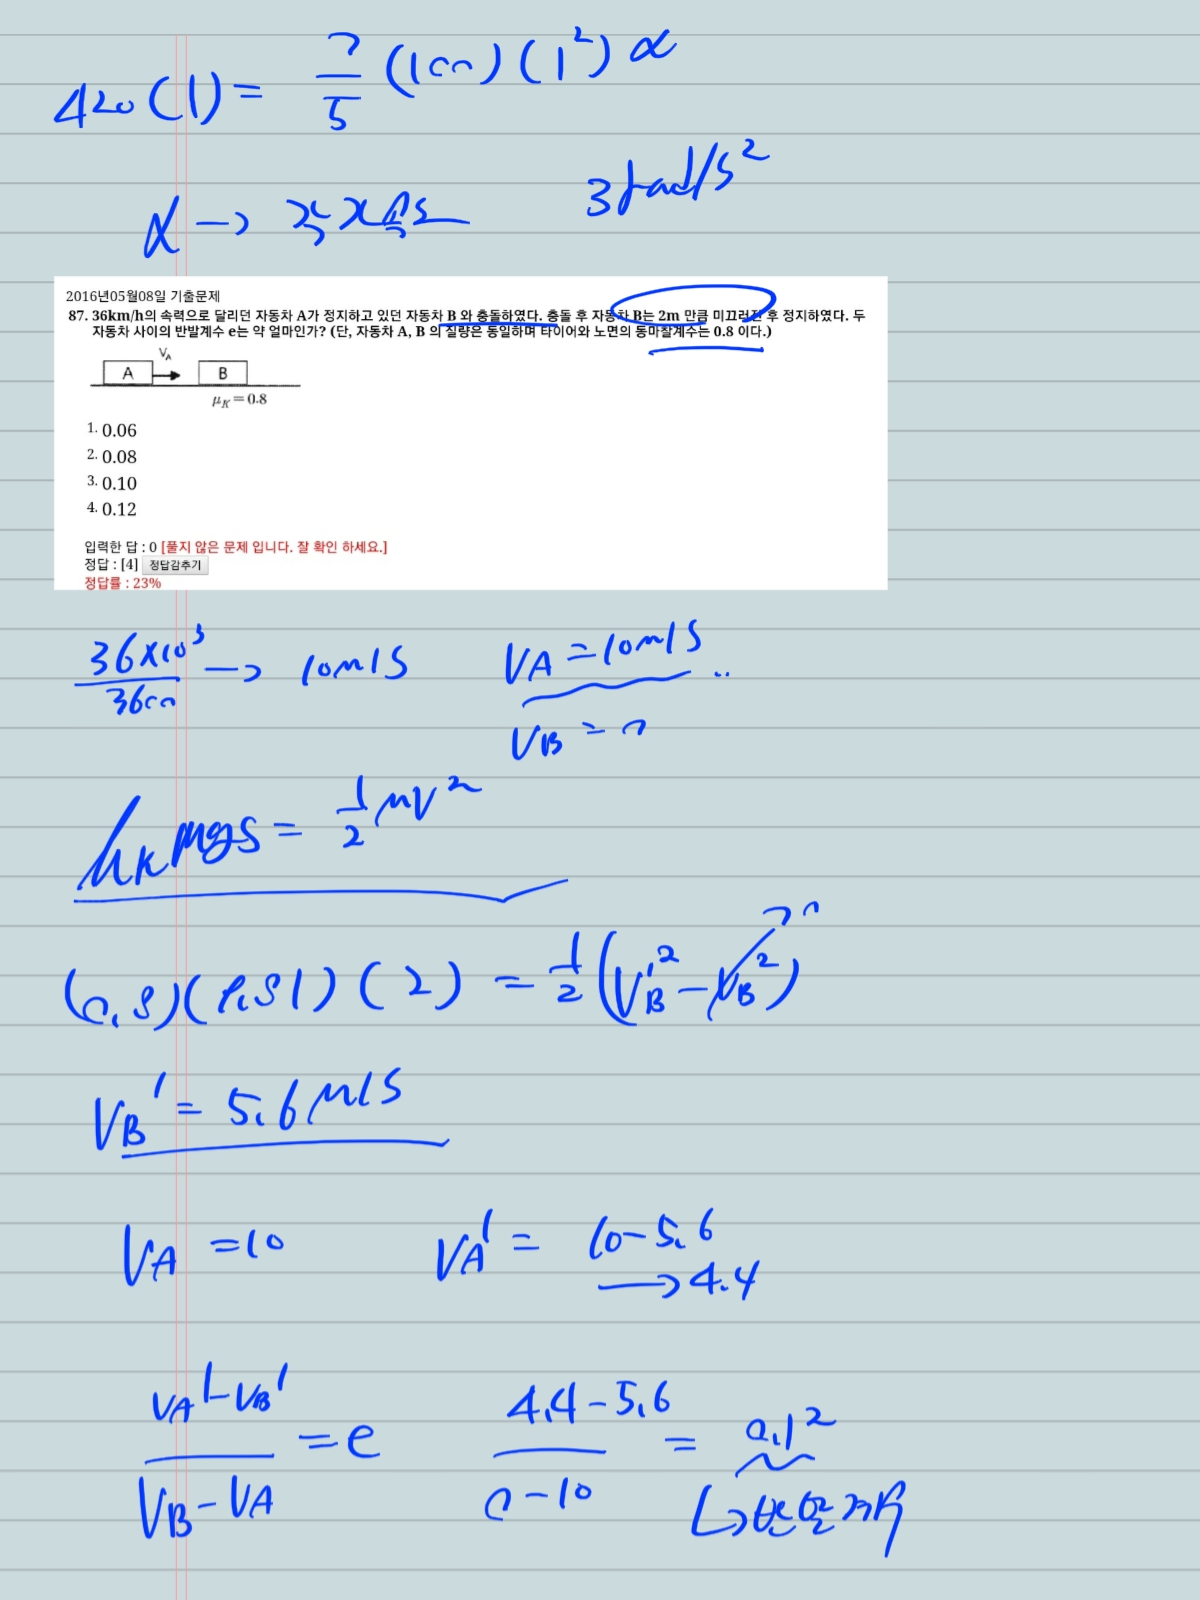 420(1) = 7/5 (100)(1²)α
α →
3rad/s²
2016년05월08일 기출문제
87. 36km/h의 속력으로 달리던 자동차 A가 정지하고 있던 자동차 B 와 충돌하였다. 충돌 후 자동차 B는 2m 만큼 미끄러진 후 정지하였다. 두
자동차 사이의 반발계수 e는 약 얼마인가? (단, 자동차 A, B 의 질량은 동일하며 타이어와 노면의 동마찰계수는 0.8 이다.)
V_A
A B
μ_K=0.8
1. 0.06
2. 0.08
3. 0.10
4. 0.12
입력한 답 : 0 [풀지 않은 문제 입니다. 잘 확인 하세요.]
정답 : [4] 정답감추기
정답률 : 23%
36×10³/3600 → 10m/s VA = 10m/s
VB = 0
μk mgs = 1/2 mv²
(0.8)(9.81)(2) = 1/2 (VB'² - VB²) → 0
VB' = 5.6m/s
VA = 10 VA' = 10-5.6
→ 4.4
(VA' - VB')/(VB - VA) = e (4.4-5.6)/(0-10) = 0.12
↳ 반발계수